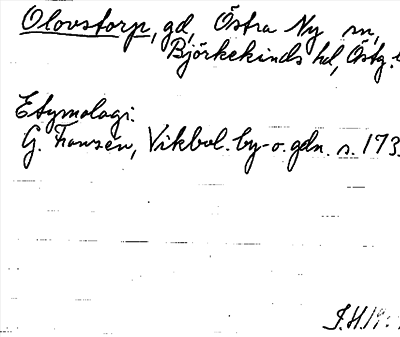 Olovstorp, gd, Östra Ny sn,
Björkekinds hd, Östg.
Etymologi:
G. Franzén, Vikbol. by- o. gdn. s. 173
J.H.